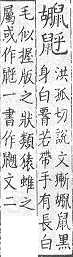 䶉
洪孤切說文䶉鼠黑
身白腰若帶手有長白
毛似握版之狀類猿蜼之
屬或作一書作文二